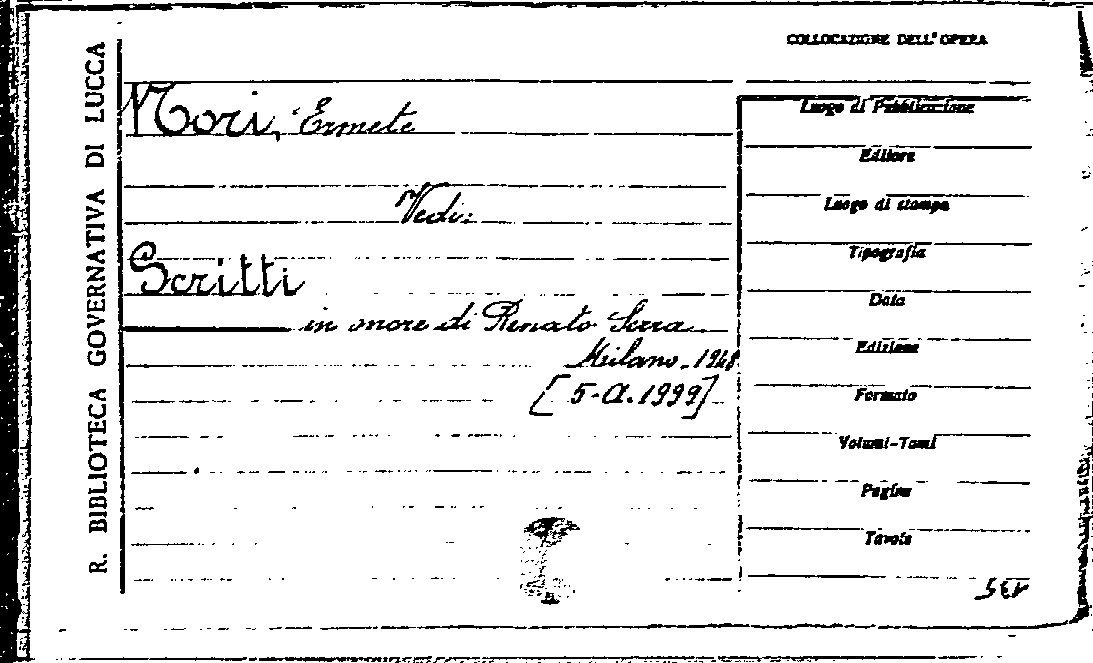 R. BIBLIOTECA GOVERNATIVA DI LUCCA
COLLOCAZIONE DELL'OPERA
Mori, Ermete
Vedi:
Scritti
in onore di Renato Serra
Milano. 1948
[5-a.1999]
Luogo di Pubblicazione
Editore
Luogo di stampa
Tipografia
Data
Edizione
Formato
Volumi-Tomi
Pagine
Tavole